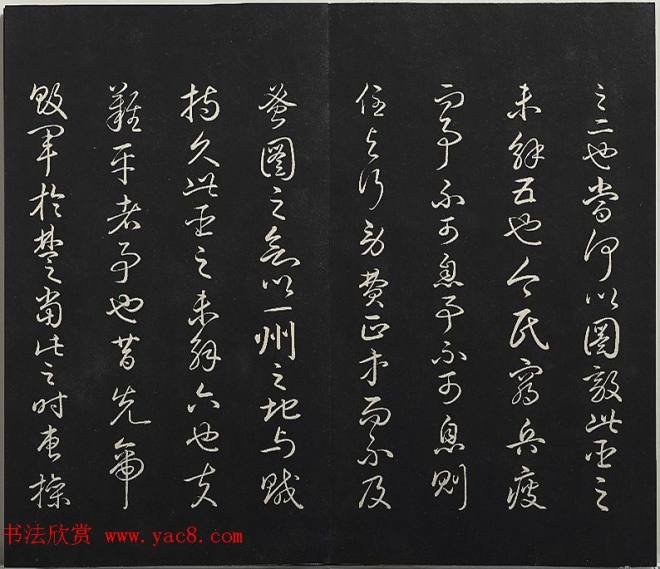 之二也當何以圖敵此臣之
未解五也今民窮兵疲
而事不可息事不可息則
住與行勞費正等而不及
蚤圖之欲以一州之地與賊
持久此臣之未解六也夫
難平者事也昔先帝
敗軍於楚當此之時曹操
书法欣赏 www.yac8.com